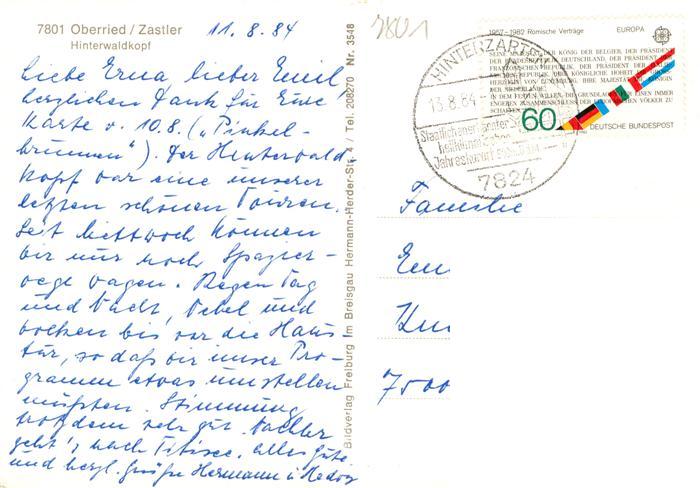 7801 Oberried / Zastler
Hinterwaldkopf
11.8.84
Liebe Erna lieber Emil
herzlichen Dank für Eure
Karte v. 10.8. („Pinkel-
brunnen“). Der Hinterwald
kopf war eine unserer
letzten schönen Touren.
Seit Mittwoch können
wir nur noch Spazier-
wege wagen. Regen Tag
und Nacht, Nebel und
Wolken bis vor die Haus-
tür, so daß wir unser Pro-
gramm etwas umstellen
mußten. Stimmung
trotzdem sehr gut. Nachher
geht's nach Titisee. Alles Gute
und herzl. Grüße Hermann u. Hedwig
Bildverlag Freiburg Im Breisgau Hermann-Herder-Str. 4 / Tel. 208270 Nr. 3548
7801
1957-1982 Römische Verträge EUROPA
SEINE MAJESTÄT DER KÖNIG DER BELGIER, DER PRÄSIDENT
DER BUNDESREPUBLIK DEUTSCHLAND, DER PRÄSIDENT
FRANZÖSISCHEN REPUBLIK, DER PRÄSIDENT DER
REPUBLIK, IHRE KÖNIGLICHE HOHEIT
HERZOGIN VON LUXEMBURG, IHRE MAJESTÄT KÖNIGIN
DER NIEDERLANDE
IN DEM FESTEN WILLEN, DIE GRUNDLAGEN EINEN IMMER
ENGEREN ZUSAMMENSCHLUSS DER EUROPÄISCHEN VÖLKER ZU
SCHAFFEN
60
DEUTSCHE BUNDESPOST
HINTERZARTEN
13.8.84
Staatlich anerkannter
heilklimat
Jahreskurort
7824
Familie
Em
7500